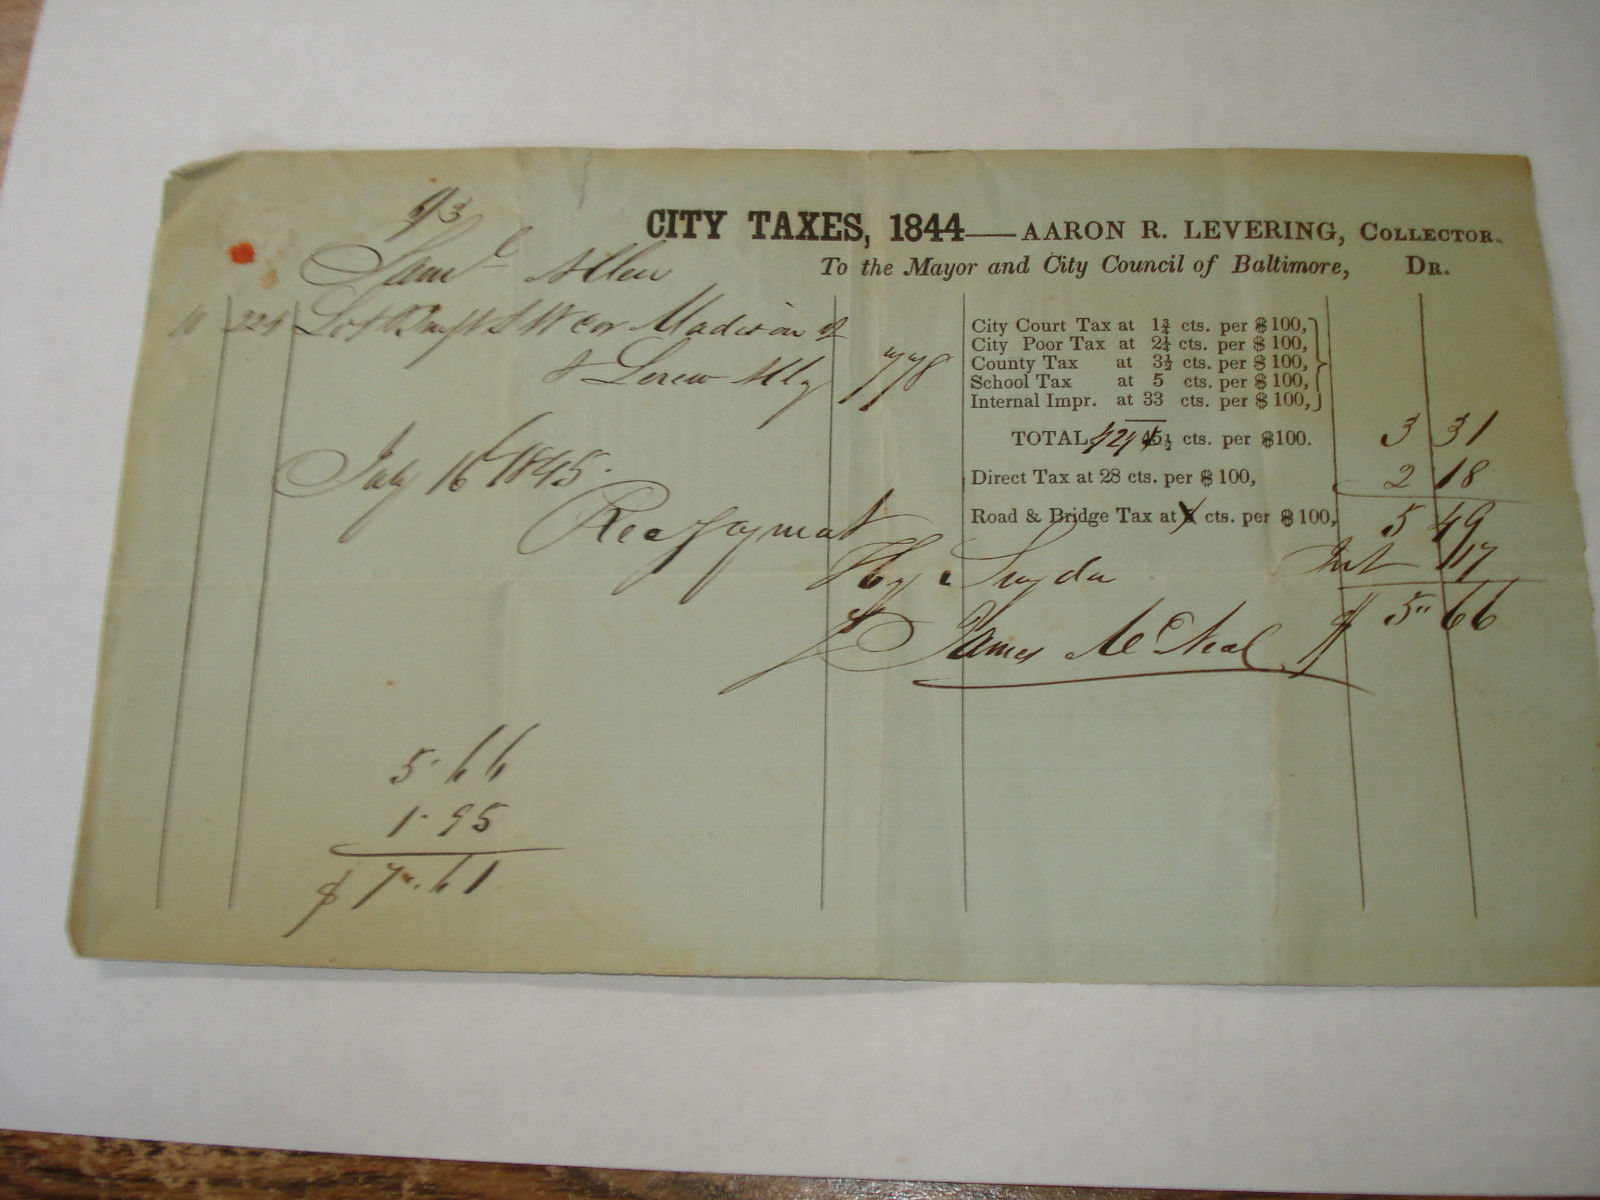 93
CITY TAXES, 1844—AARON R. LEVERING, COLLECTOR.
To the Mayor and City Council of Baltimore, DR.
Saml Allen
10 224 Lot & Impt S W cor Madison st
& Allly 778
City Court Tax at 1¾ cts. per $100,
City Poor Tax at 2¼ cts. per $100,
County Tax at 3½ cts. per $100,
School Tax at 5 cts. per $100,
Internal Impr. at 33 cts. per $100,
TOTAL, 42½ 45½ cts. per $100. 3 31
Direct Tax at 28 cts. per $100, 2 18
Road & Bridge Tax at cts. per $100, 5 49
July 16 1845.
Rec payment
Hy Snyder Int 17
James McNeal $ 5" 66
5.66
1.95
$ 7.61